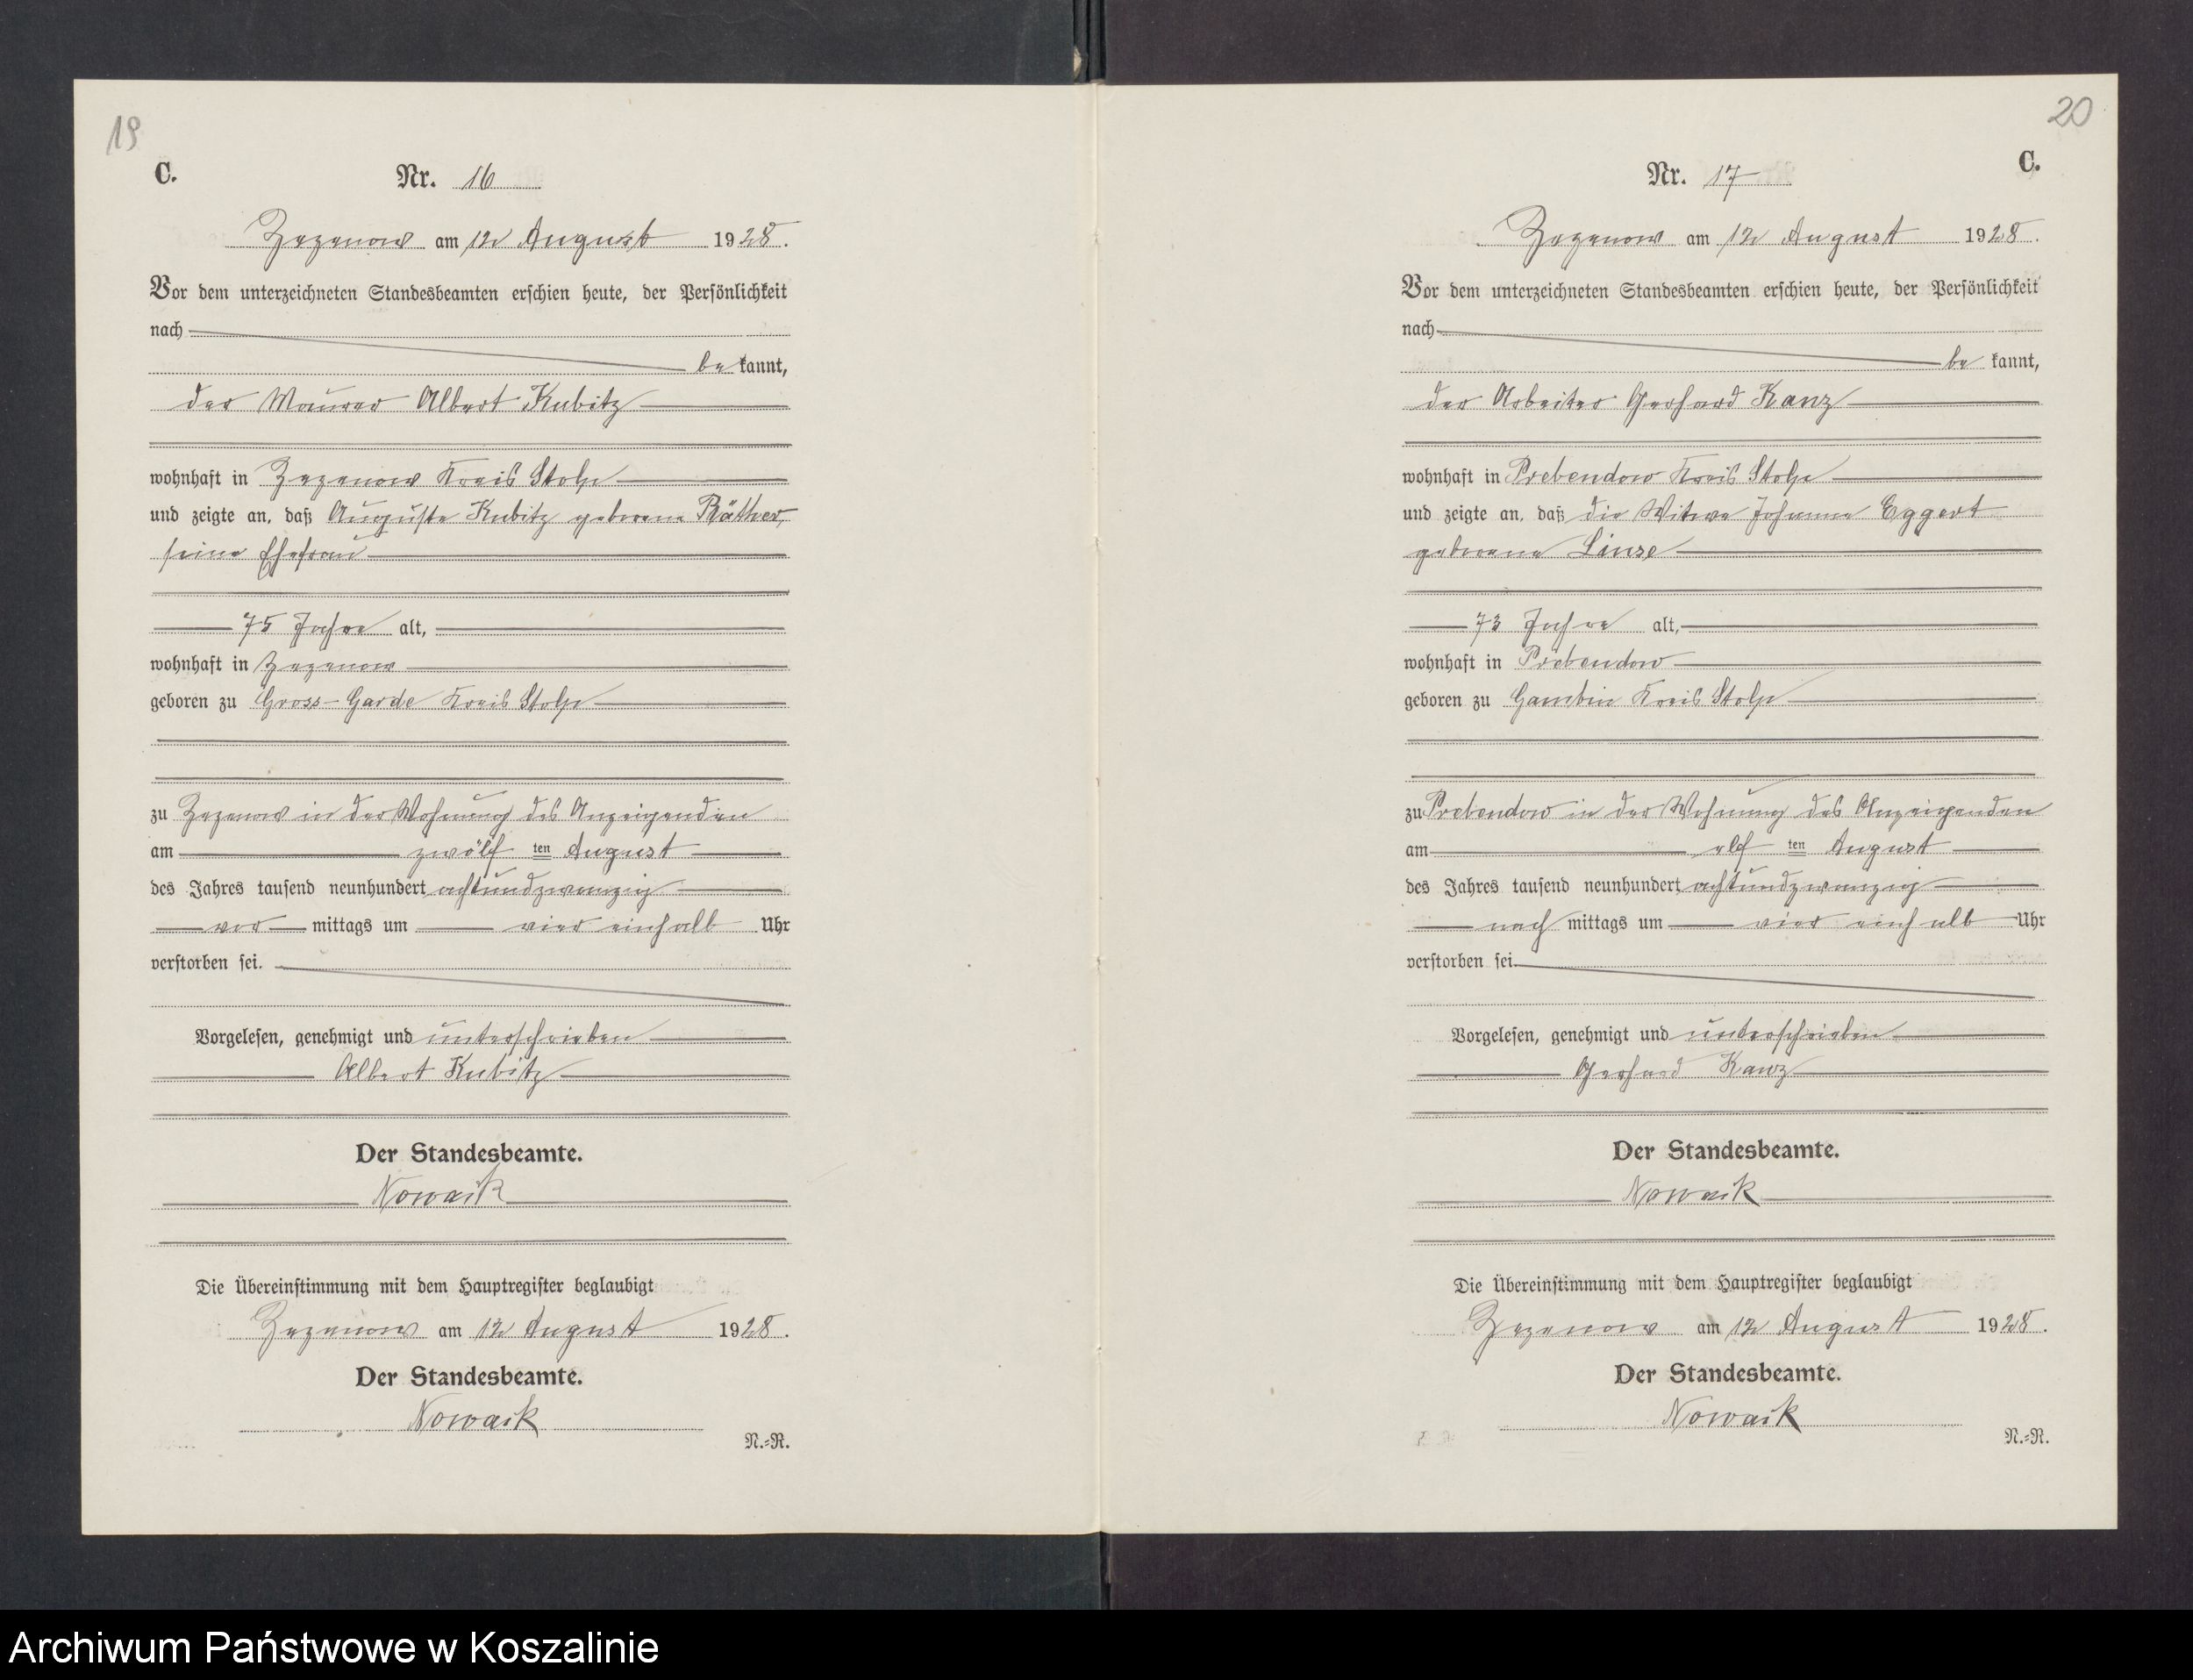 19
C.
Nr. 16
Zezenow am 12 August 1928.
Vor dem unterzeichneten Standesbeamten erschien heute, der Persönlichkeit
nach
be kannt,
der Maurer Albert Kubitz
wohnhaft in Zezenow Kreis Stolp
und zeigte an, daß Auguste Kubitz geborene Räther,
seine Ehefrau
75 Jahre alt,
wohnhaft in Zezenow
geboren zu Gross-Garde Kreis Stolp
zu Zezenow in der Wohnung des Anzeigenden
am zwölf ten August
des Jahres tausend neunhundert achtundzwanzig
vor mittags um vier einhalb Uhr
verstorben sei.
Vorgelesen, genehmigt und unterschrieben
Albert Kubitz
Der Standesbeamte.
Nowack
Die Übereinstimmung mit dem Hauptregister beglaubigt
Zezenow am 12 August 1928.
Der Standesbeamte.
Nowack
N.=R.
20
C.
Nr. 17
Zezenow am 12 August 1928.
Vor dem unterzeichneten Standesbeamten erschien heute, der Persönlichkeit
nach
be kannt,
der Arbeiter Gerhard Kanz
wohnhaft in Prebendow Kreis Stolp
und zeigte an, daß die Witwe Johanne Eggert
geborene Linse
73 Jahre alt,
wohnhaft in Prebendow
geboren zu Gambin Kreis Stolp
zu Prebendow in der Wohnung des Anzeigenden
am elf ten August
des Jahres tausend neunhundert achtundzwanzig
nach mittags um vier einhalb Uhr
verstorben sei.
Vorgelesen, genehmigt und unterschrieben
Gerhard Kanz
Der Standesbeamte.
Nowack
Die Übereinstimmung mit dem Hauptregister beglaubigt
Zezenow am 12 August 1928.
Der Standesbeamte.
Nowack
N.=R.
Archiwum Państwowe w Koszalinie